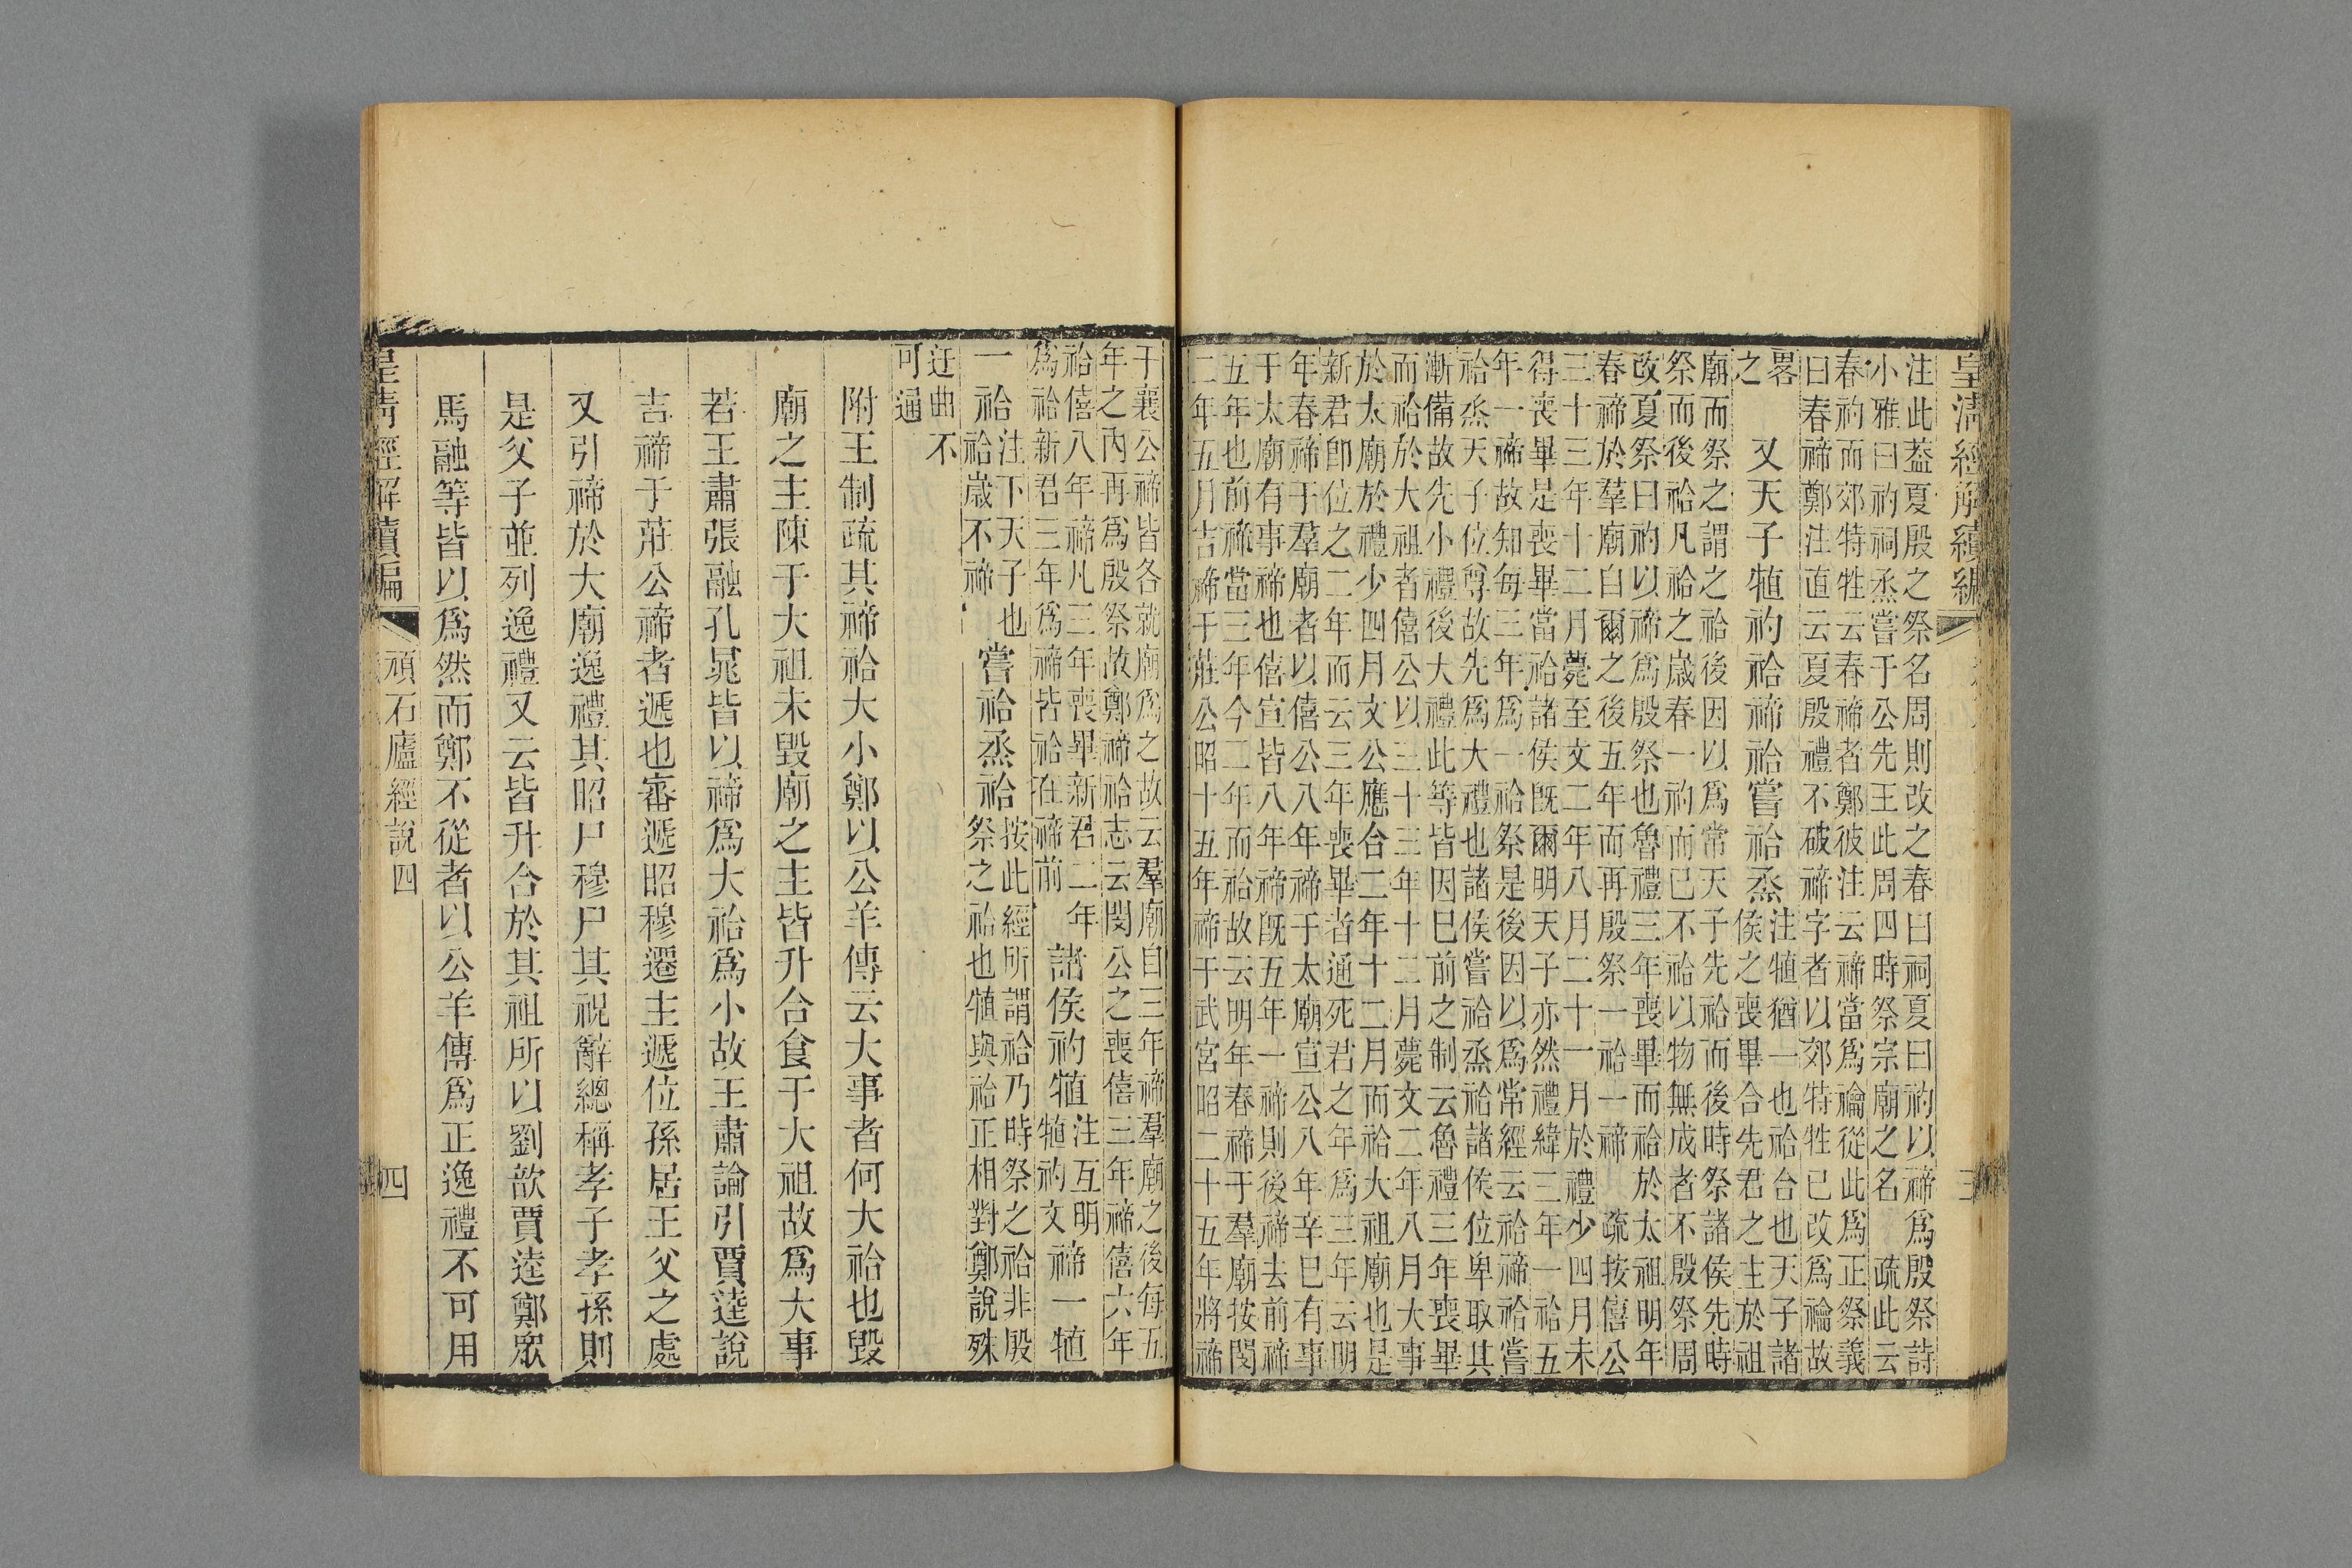 皇清經解續編
三
注此葢夏殷之祭名周則改之春曰祠夏曰礿以禘爲殷祭詩
小雅曰礿祠烝嘗于公先王此周四時祭宗廟之名 疏此云
春礿而郊特牲云春禘者鄭彼注云禘當爲禴從此爲正祭義
曰春禘鄭注直云夏殷禮不破禘字者以郊特牲已改爲禴故
畧
之
又天子犆礿祫禘祫嘗祫烝
注犆猶一也祫合也天子諸
侯之喪畢合先君之主於祖
廟而祭之謂之祫後因以爲常天子先祫而後時祭諸侯先時
祭而後祫凡祫之歲春一礿而已不祫以物無成者不殷祭周
改夏祭曰礿以禘爲殷祭也魯禮三年喪畢而祫於太祖明年
春禘於羣廟自爾之後五年而再殷祭一祫一禘 疏按僖公
三十三年十二月薨至文二年八月二十一月於禮少四月未
得喪畢是喪畢當祫諸侯旣爾明天子亦然禮緯三年一祫五
年一禘故知每三年爲一祫祭是後因以爲常經云祫禘祫嘗
祫烝天子位尊故先爲大禮也諸侯嘗祫烝祫諸侯位卑取其
漸備故先小禮後大禮此等皆因巳前之制云魯禮三年喪畢
而祫於大祖者僖公以三十三年十二月薨文二年八月大事
於太廟於禮少四月文公應合二年十二月而祫大祖廟也是
新君卽位之二年而云三年喪畢者通死君之年爲三年云明
年春禘于羣廟者以僖公八年禘于太廟宣公八年辛巳有事
于太廟有事禘也僖宣皆八年禘旣五年一禘則後禘去前禘
五年也前禘當三年今二年而祫故云明年春禘于羣廟按閔
二年五月吉禘于莊公昭十五年禘于武宮昭二十五年將禘
于襄公禘皆各就廟爲之故云羣廟自三年禘羣廟之後每五
年之內再爲殷祭故鄭禘祫志云閔公之喪僖三年禘僖六年
祫僖八年禘凡三年喪畢新君二年
爲祫新君三年爲禘皆祫在禘前
諸侯礿犆
注互明
犆礿文
禘一犆
一祫
注下天子也
祫歲不禘
嘗祫烝祫
按此經所謂祫乃時祭之祫非殷
祭之祫也犆與祫正相對鄭說殊
迂曲不
可通
附王制疏其禘祫大小鄭以公羊傳云大事者何大祫也毀
廟之主陳于大祖未毀廟之主皆升合食于大祖故爲大事
若王肅張融孔晁皆以禘爲大祫爲小故王肅論引賈逵說
吉禘于莊公禘者遞也審遞昭穆遷主遞位孫居王父之處
又引禘於大廟逸禮其昭尸穆尸其祝辭總稱孝子孝孫則
是父子並列逸禮又云皆升合於其祖所以劉歆賈逵鄭眾
馬融等皆以爲然而鄭不從者以公羊傳爲正逸禮不可用
皇清經解續編
頑石廬經說四
四